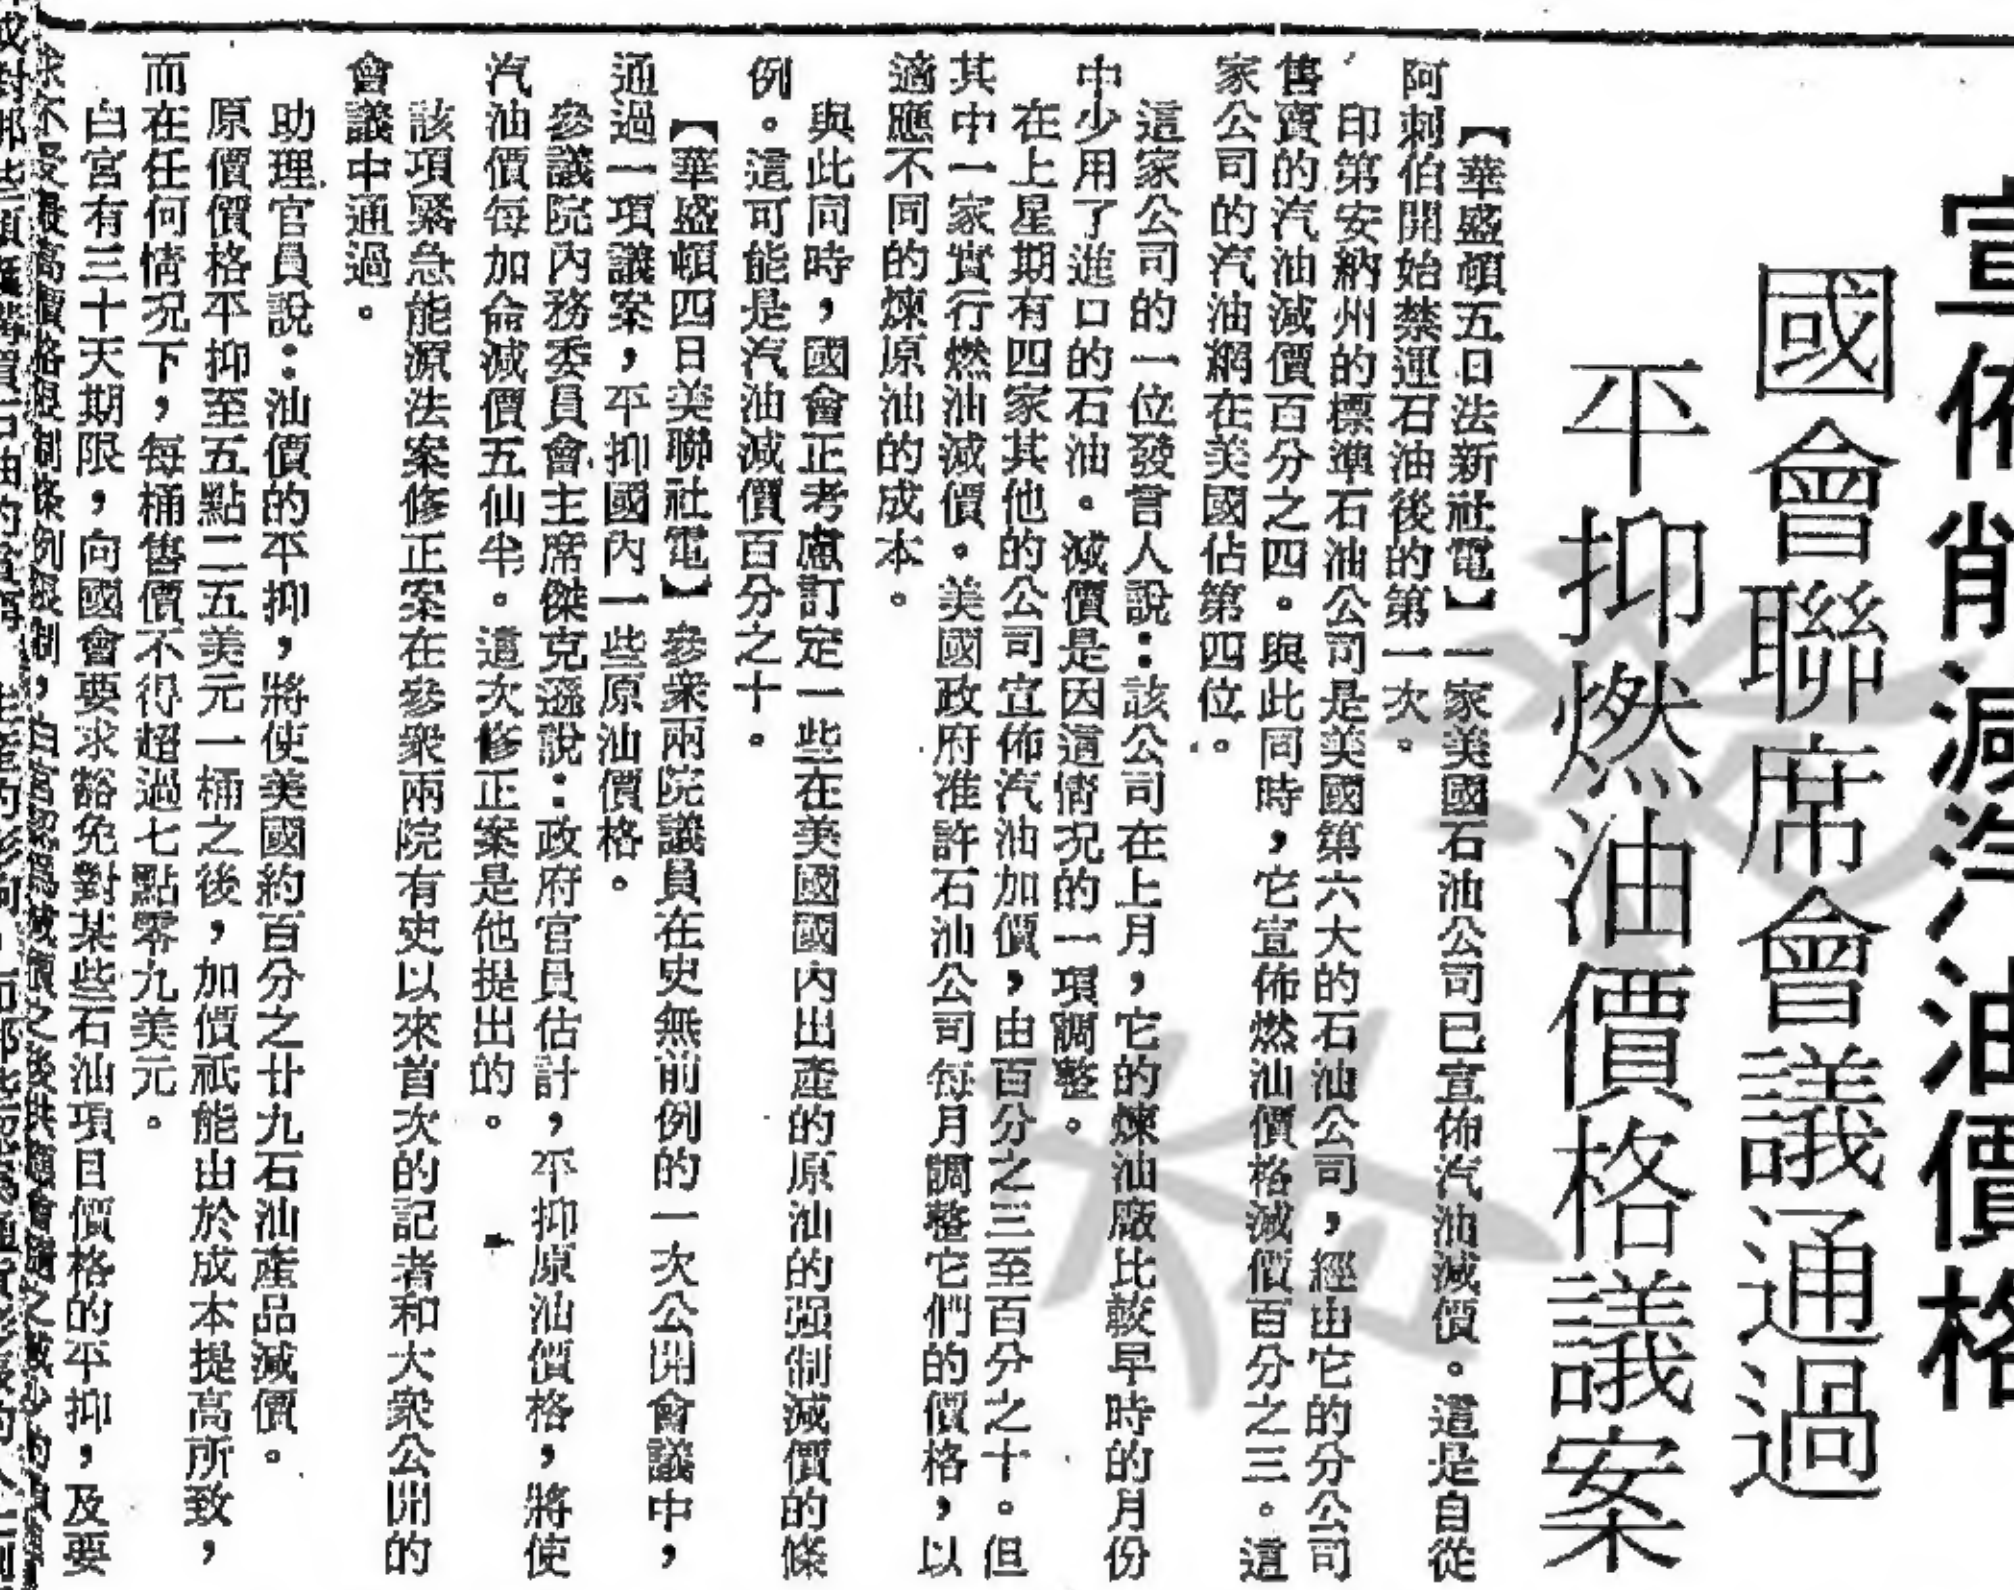 宣佈削減汽油價格
國會聯席會議通過
平抑燃油價格議案
【華盛頓五日法新社電】一家美國石油公司已宣佈汽油減價。這是自從
阿剌伯開始禁運石油後的第一次。
印第安納州的標準石油公司是美國第六大的石油公司，經由它的分公司
售賣的汽油減價百分之四。與此同時，它宣佈燃油價格減價百分之三。這
家公司的汽油網在美國佔第四位。
這家公司的一位發言人說：該公司在上月，它的煉油廠比較早時的月份
中少用了進口的石油。減價是因這情況的一項調整。
在上星期有四家其他的公司宣佈汽油加價，由百分之三至百分之十。但
其中一家實行燃油減價。美國政府准許石油公司每月調整它們的價格，以
適應不同的煉原油的成本。
與此同時，國會正考慮訂定一些在美國國內出產的原油的强制減價的條
例。這可能是汽油減價百分之十。
【華盛頓四日美聯社電】參衆兩院議員在史無前例的一次公開會議中，
通過一項議案，平抑國內一些原油價格。
參議院內務委員會主席傑克遜說：政府官員估計，平抑原油價格，將使
汽油價每加侖減價五仙半。這次修正案是他提出的。
該項緊急能源法案修正案在參衆兩院有史以來首次的記者和大衆公開的
會議中通過。
助理官員說：油價的平抑，將使美國約百分之廿九石油產品減價。
原價價格平抑至五點二五美元一桶之後，加價祇能由於成本提高所致，
而在任何情況下，每桶售價不得超過七點零九美元。
白宮有三十天期限，向國會要求豁免對某些石油項目價格的平抑，及要